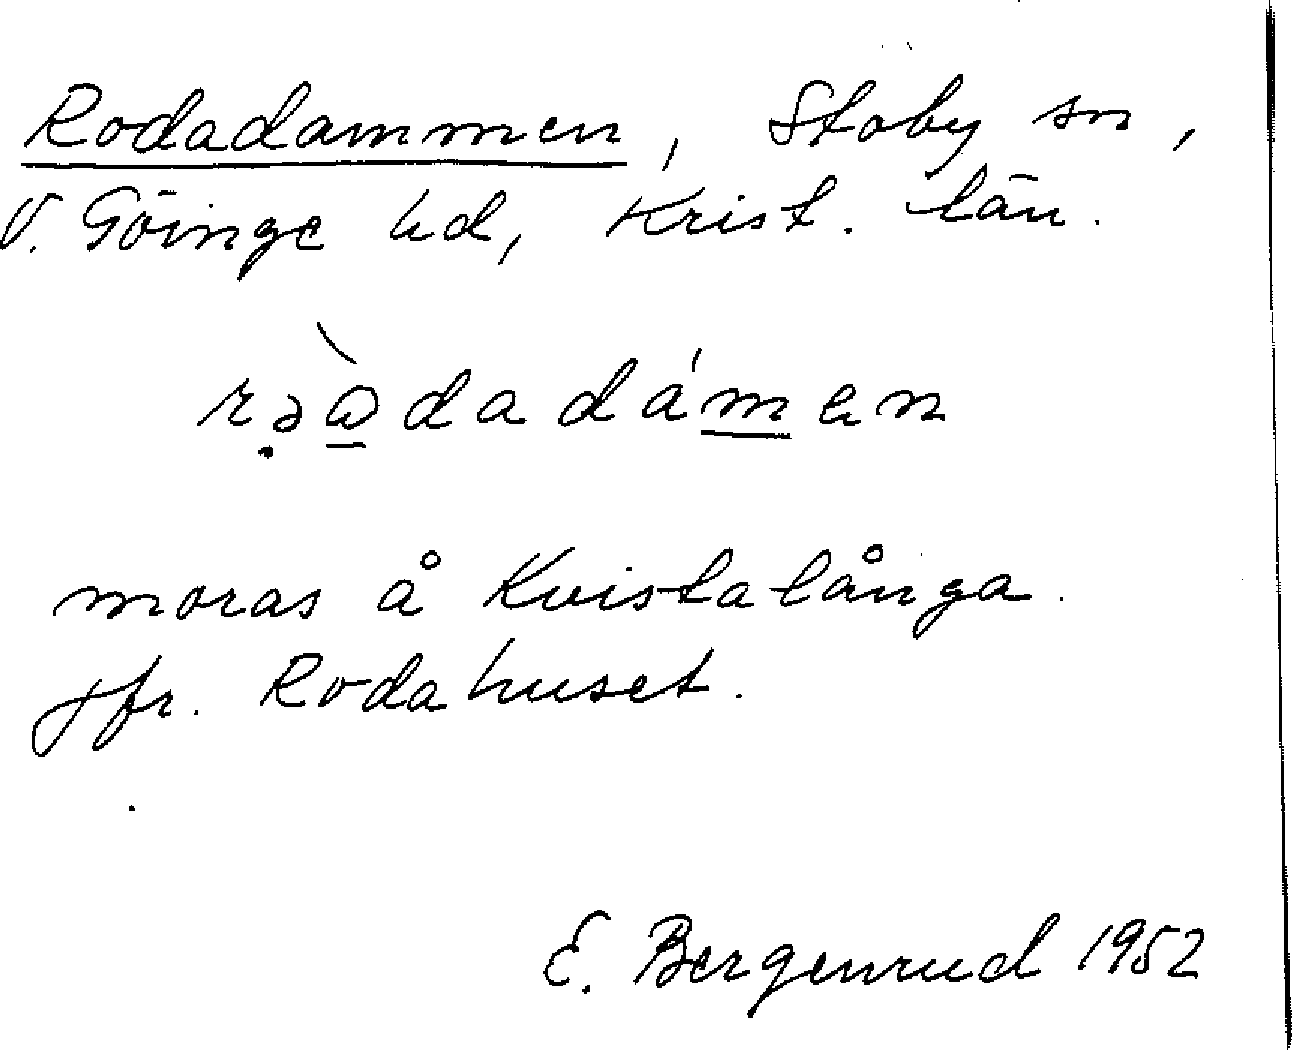 Rodadammen, Stoby sn,
V. Göinge hd, Krist. län.
moras å Kvistalånga.
Jfr. Rodahuset.
E. Bergenrud 1952